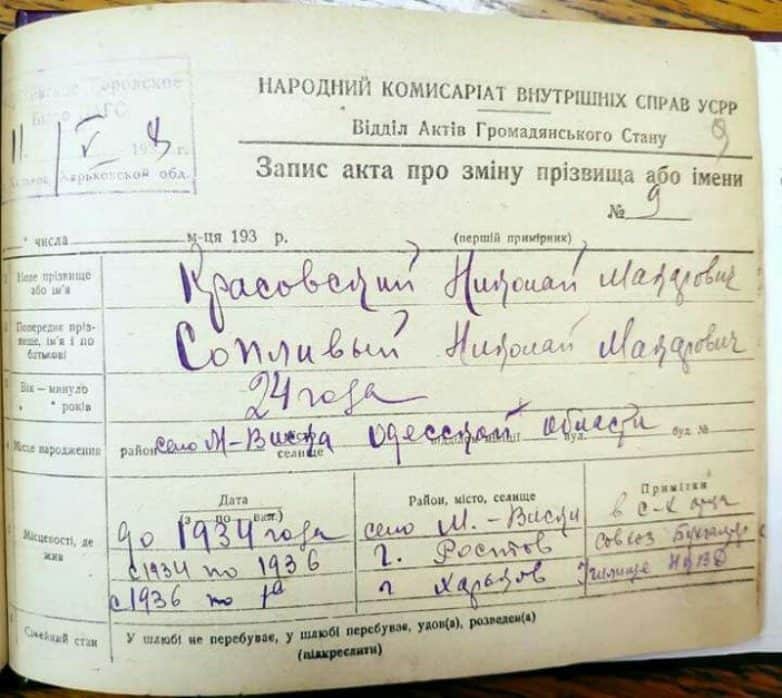 Горовское
Бюро ЗАГС
11 V 1938 г.
Харьковской обл.
НАРОДНИЙ КОМИСАРІАТ ВНУТРІШНІХ СПРАВ УСРР
Відділ Актів Громадянського Стану
9
Запис акта про зміну прізвища або імени
№ 9
" числа м-ця 193 р. (перший примірник)
Нове прізвище або ім'я Красовский Николай Макарович
Попереднє прізвище, ім'я і по батькові Сопливый Николай Макарович
Вік — минуло " " років 24 года
Місце народження район село М-Виска Одесской области селище вул. буд. №
Місцевості, де жив
Дата (з — по — вкл.) Район, місто, селище Примітки
до 1934 года село М.-Виски в с-х
с 1934 по 1936 г. Ростов совхоз
с 1936 по г Харьков Училище НКВД
Сімейний стан У шлюбі не перебуває, у шлюбі перебуває, удов(а), розведен(а)
(підкреслити)